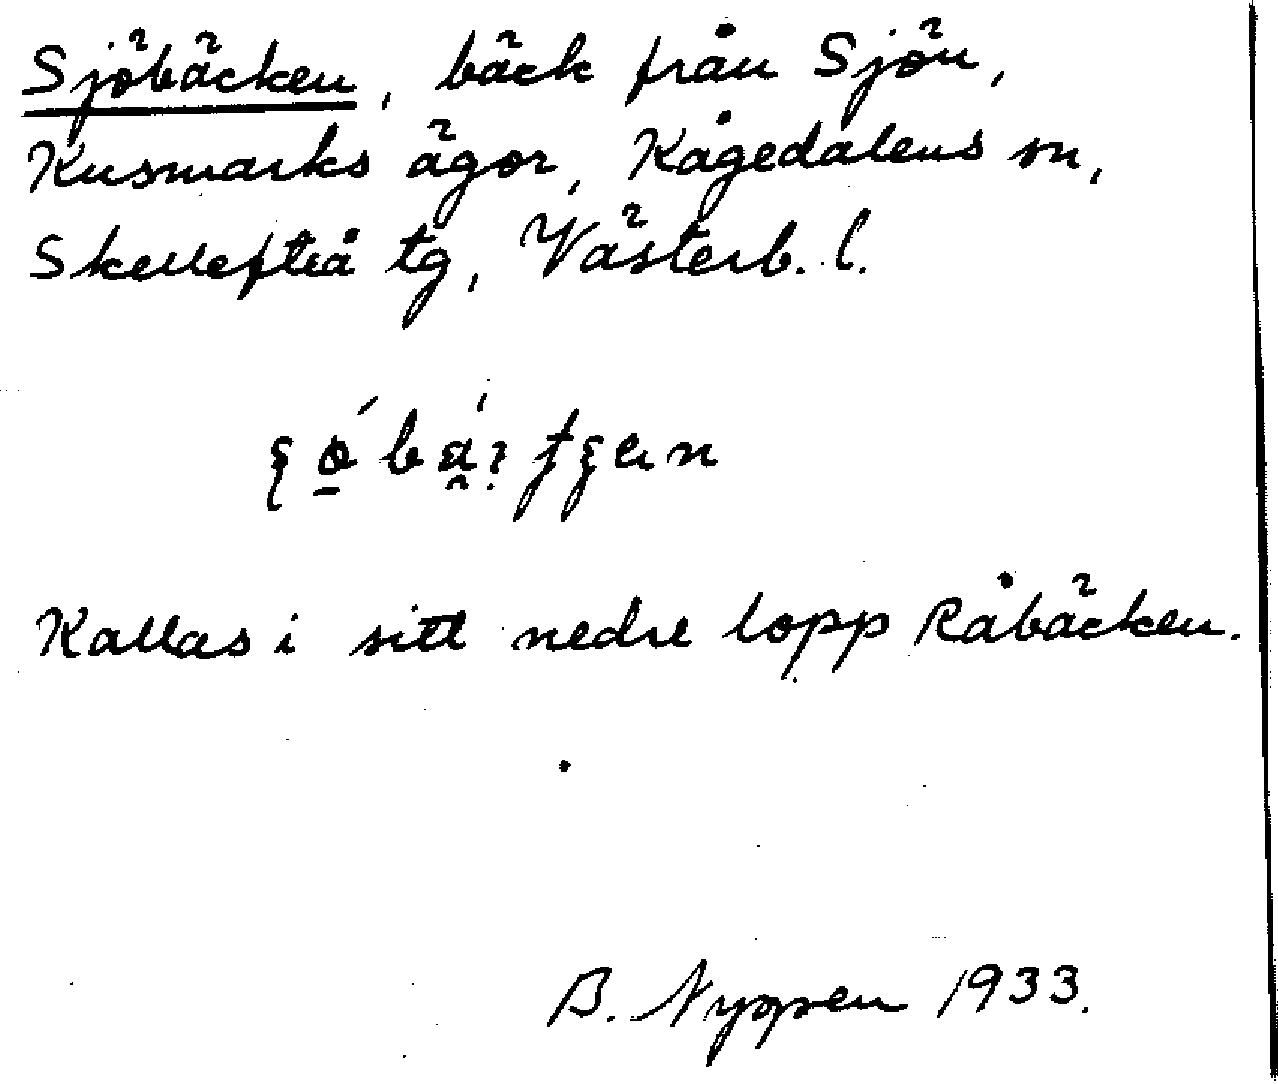 Sjöbäcken, bäck från Sjön,
Kusmarks ägor, Kågedalens sn,
Skellefteå tg, Västerb. l.
Kallas i sitt nedre lopp Råbäcken.
B. Nyppen 1933.